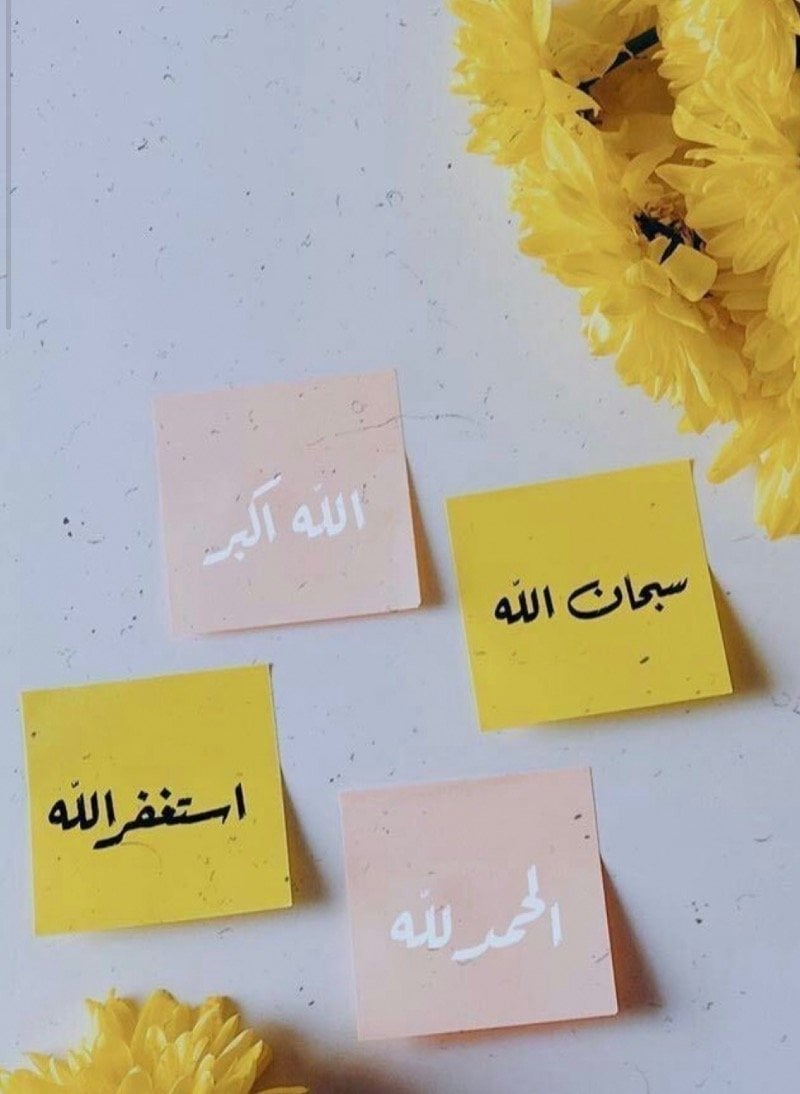 الله اكبر
سبحان الله
استغفر الله
الحمد لله